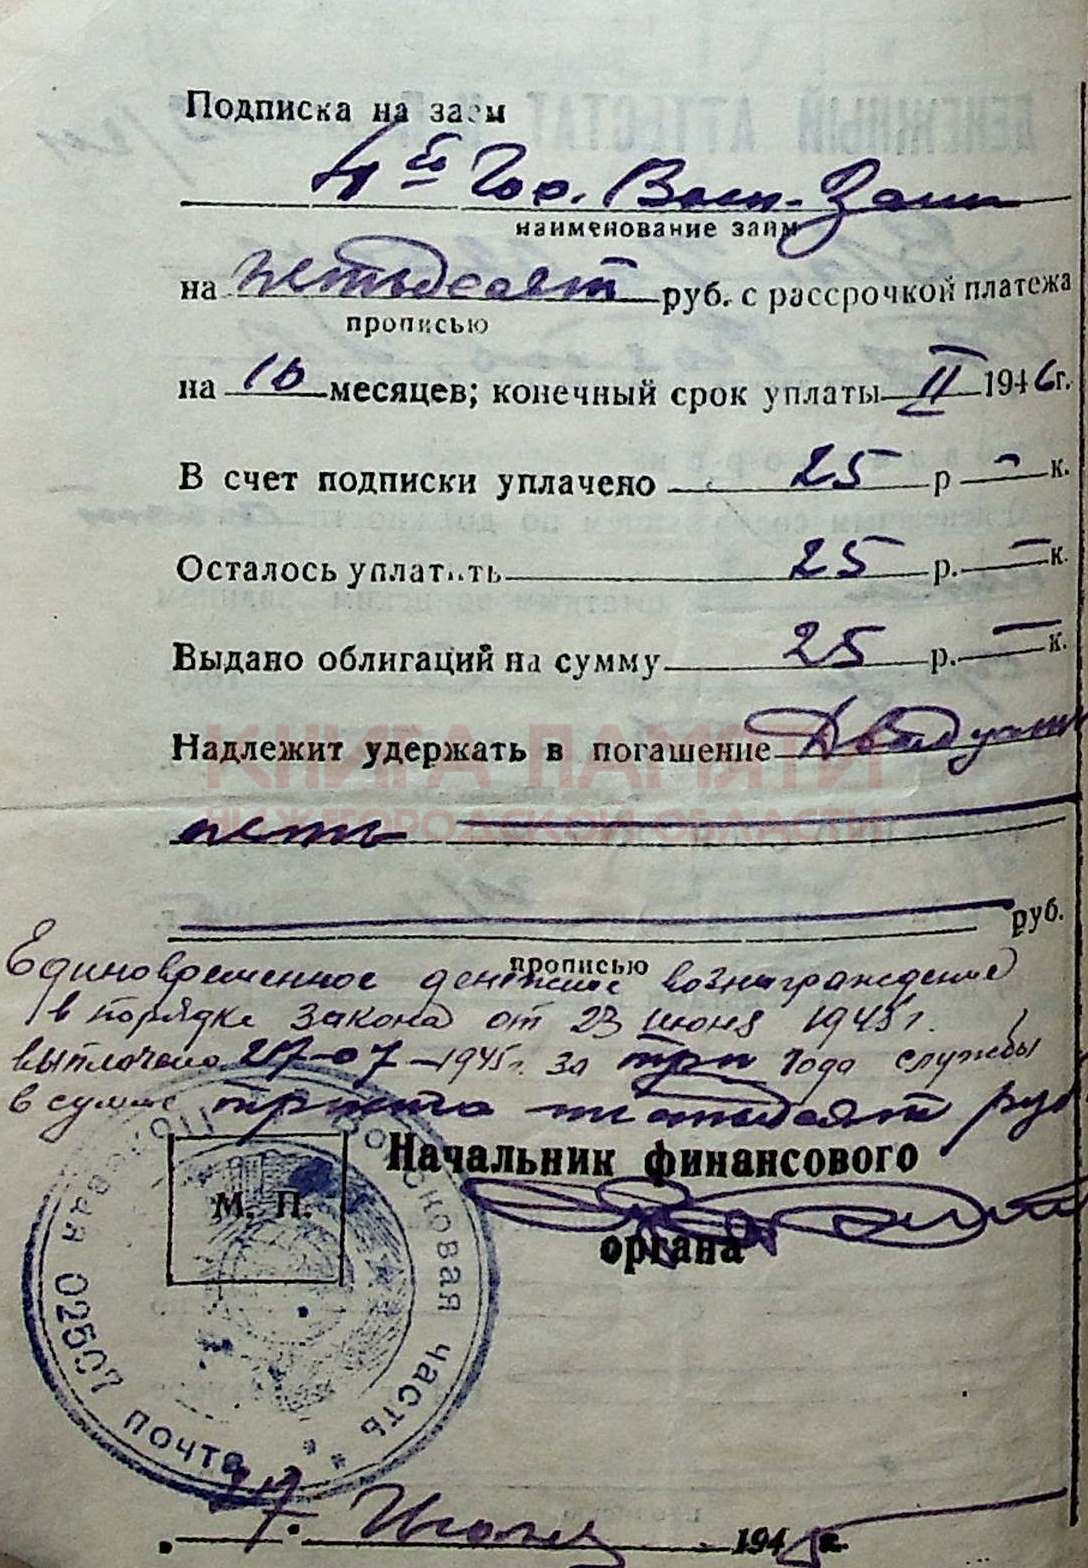 Подписка на заем
4й Гос. Воен. Заем
наименование займ
на петьдесет руб. с рассрочкой платежа
прописью
на 10 месяцев; конечный срок уплаты II 1946г.
В счет подписки уплачено 25 р — к.
Осталось уплатить 25 р. — к.
Выдано облигаций на сумму 25 р. — к.
Надлежит удержать в погашение Двадцать
КНИГА ПАМЯТИ
НИЖЕГОРОДСКОЙ ОБЛАСТИ
петь
руб.
прописью
Единовременное денежное вознаграждение
в порядке Закона от 23 июня 1945г.
выплочено 27-07-1945г. за три года службы
в сумме триста петьдесят руб
Начальник финансового
органа
М. П.
войсковая часть
почта 02507
27. Июля 1945 г.